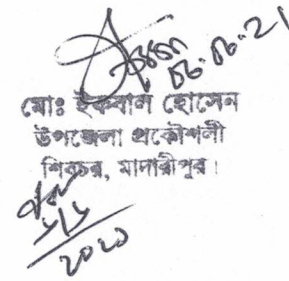 ০৬.০৬.২১
মোঃ ইকবাল হোসেন
উপজেলা প্রকৌশলী
শিবচর, মাদারীপুর।
২০২১